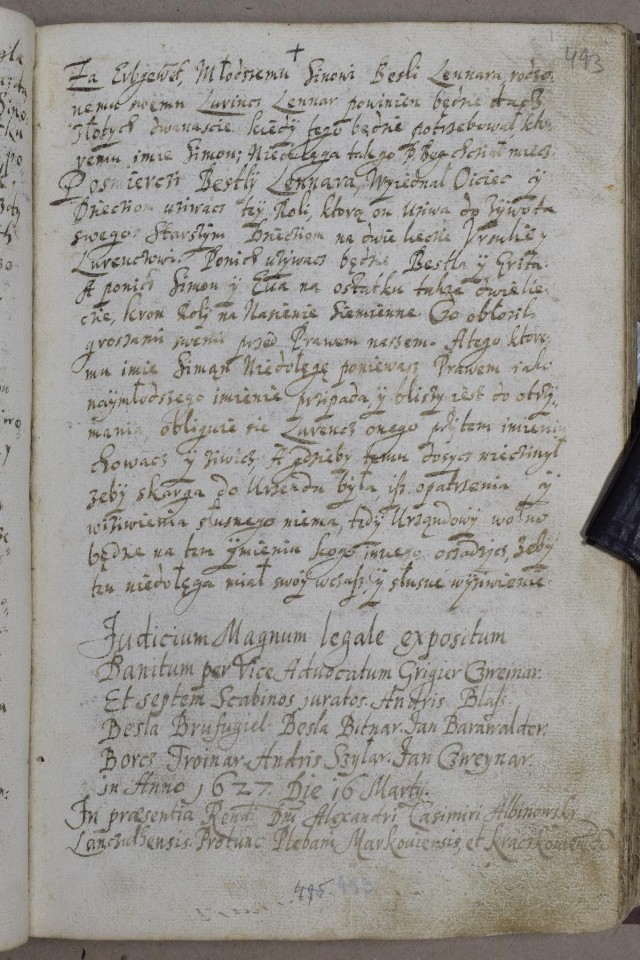 493
Za Erbgewet, Młodszemu Sinowi Besli Lennara, rodzo
nemu swemu Lavincs Lennar powinien będzie dacz
złotych dwanascie kiedy tego będzie potrzebował kto
remu imie Simon; Niedołęga takego P Bog chciał miecz
Posmierczi Bestlÿ Lennara, Wyiednał Oiciec ÿ
Dzieciom używacz tey Roli, ktorą on używa do żywota
swego. Starszÿm Dzieciom na dwie liecie Ursulie y
Lavenczowi. Ponich używacz będzie Bestla ÿ Grita.
A ponich Simon ÿ Eua na ostatku także dwie lie
cie, Rolÿ na Nasienie Siemienne. Co obłożił
groszami swemi przed Prawem naszem. A tego ktore
mu imie Siman Niedołęgę poniewasz Prawem iako
naÿmłodszego imienie przipada, ÿ bliszÿ iest do otrzÿ
mania, obliguie sie Lavencz onego przÿtem imieniu
chowacz ÿ ziwicz, A gdzieby temu dosycz nieczinÿł
zebÿ skarga do Urzendu była isz opatrzenia ÿ
wiżiwienia słusnego niema, tedÿ Urzędowÿ wolno
będzie na ten ÿmieniu kogo innego osadzicz, żebÿ
ten niedołęga miał swóÿ wczasz, ÿ słusne wÿżiwienie
Judicium Magnum legale expositum
Banitum per Vice Advocatum Grigier Czweinar.
Et septem Scabinos juratos. Andris Blasz
Besla Brufugiel Besla Bitnar. Jan Barawalder.
Borcz Troinar. Andris Szylar. Jan Czweynar.
in Anno 1627. Die 16 Martÿ.
In præsentia Rend: Dni Alexandri Casimiri Albinowski
Lanczuthensis. Protunc Plebani Markowiensis, et Kraczkowiensis
495